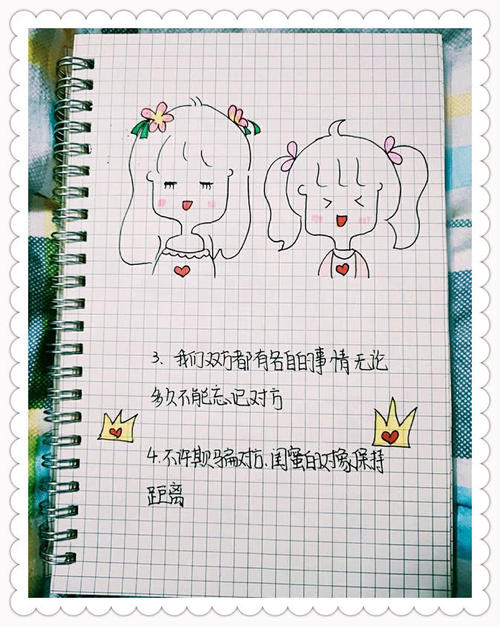 3、我们双方都有各自的事情无论
多久不能忘记对方
4.不许欺骗对方、闺蜜的对象保持
距离